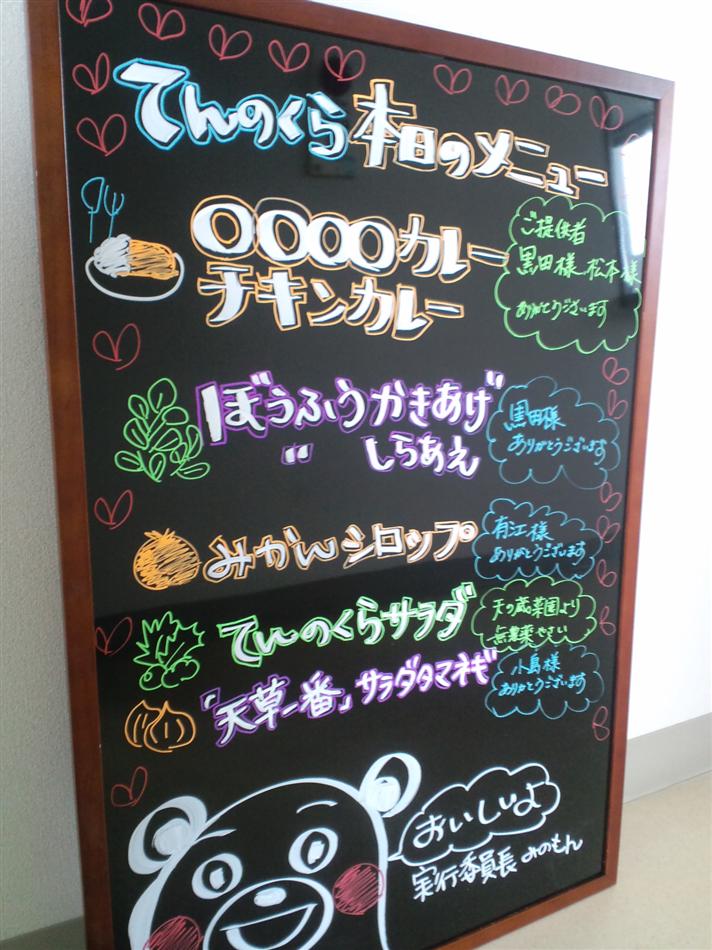 てんのくら本日のメニュー
〇〇〇〇カレー
チキンカレー
ご提供者
黒田様 松本様
ありがとうございます
ぼうふうかきあげ
〃 しらあえ
黒田様
ありがとうございます
みかんシロップ
有江様
ありがとうございます
てんのくらサラダ
天の蔵菜園より
無農薬やさい
「天草一番」サラダタマネギ
小島様
ありがとうございます
おいしいよ
実行委員長 みのもん